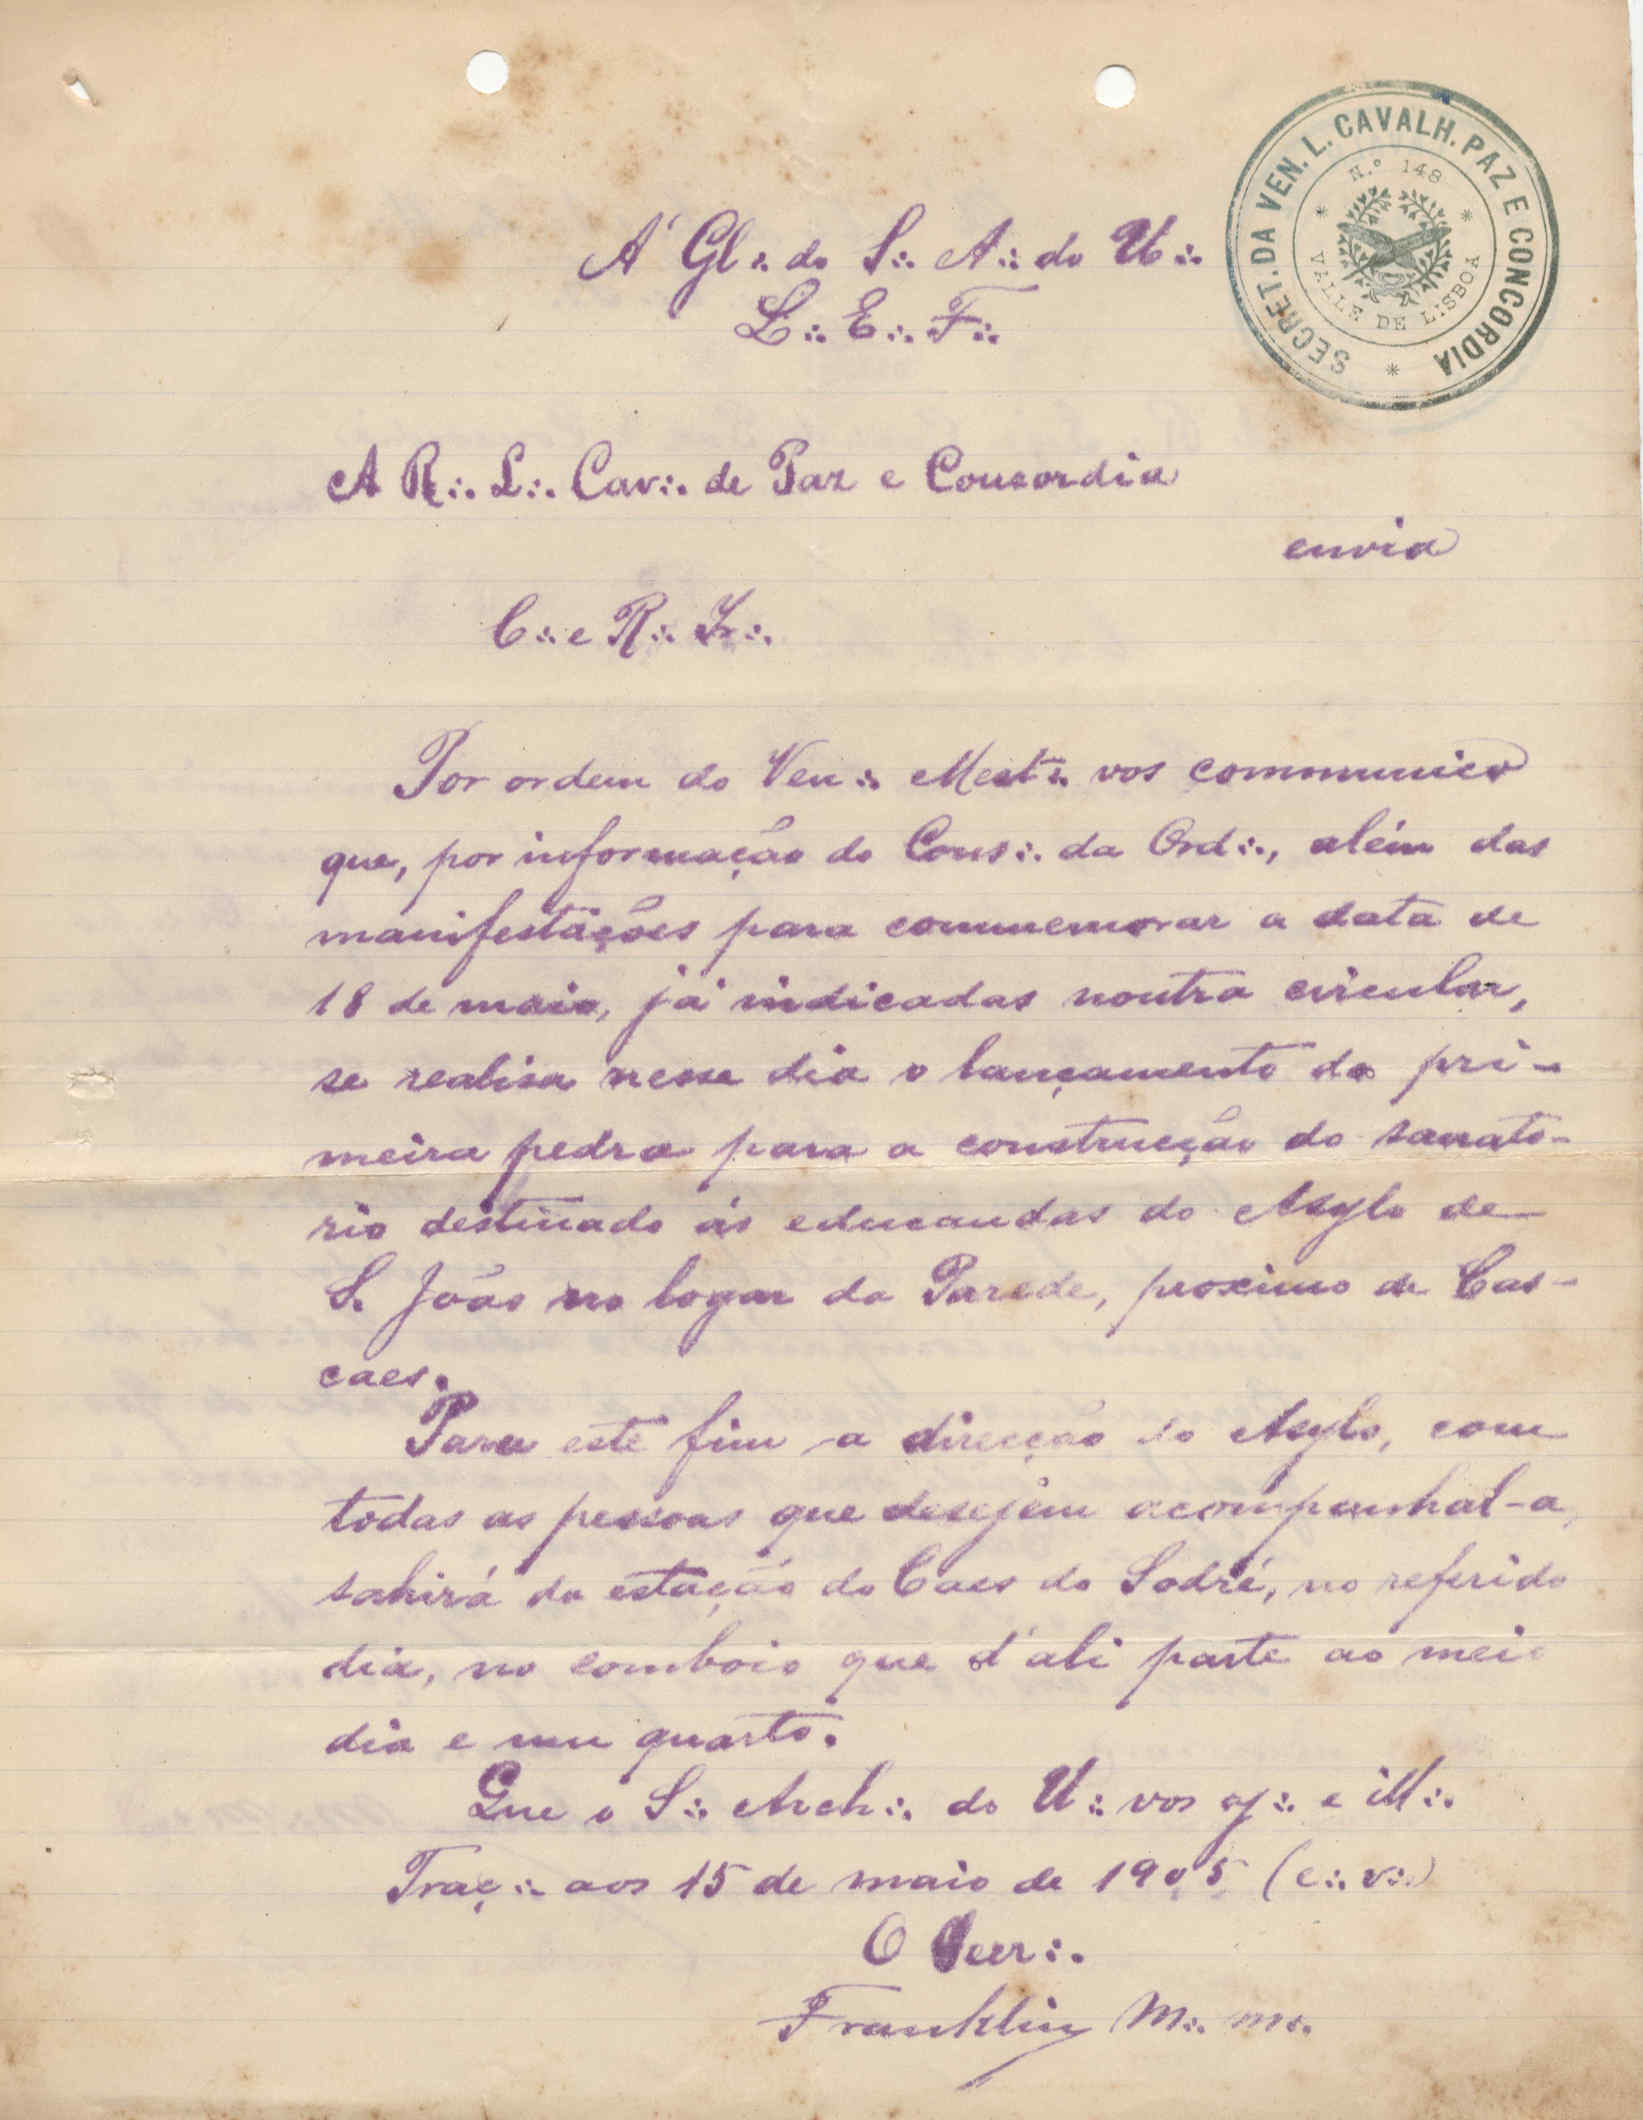 SECRET. DA VEN. L. CAVALH. PAZ E CONCORDIA
N.º 148
VALLE DE LISBOA
A' Gl∴ do S∴ A∴ do U∴
L∴ E∴ F∴
A R∴ L∴ Cav∴ de Paz e Concordia
envia
C∴ e R∴ Ir∴
Por ordem do Ven∴ Mest∴ vos communico
que, por informação do Cons∴ da Ord∴, além das
manifestações para commemorar a data de
18 de maio, já indicadas noutra circular,
se realisa nesse dia o lançamento da pri-
meira pedra para a construcção do sanato-
rio destinado ás educandas do Asylo de
S. João no logar da Parede, proximo de Cas-
caes.
Para este fim a direcção do Asylo, com
todas as pessoas que desejem acompanhal-a,
sahirá da estação do Caes do Sodré, no referido
dia, no comboio que d'ali parte ao meio
dia e um quarto.
Que o S∴ Arch∴ do U∴ vos aj∴ e ill∴
Traç∴ aos 15 de maio de 1905 (e∴ v∴)
O Secr∴
Franklin M∴ m∴